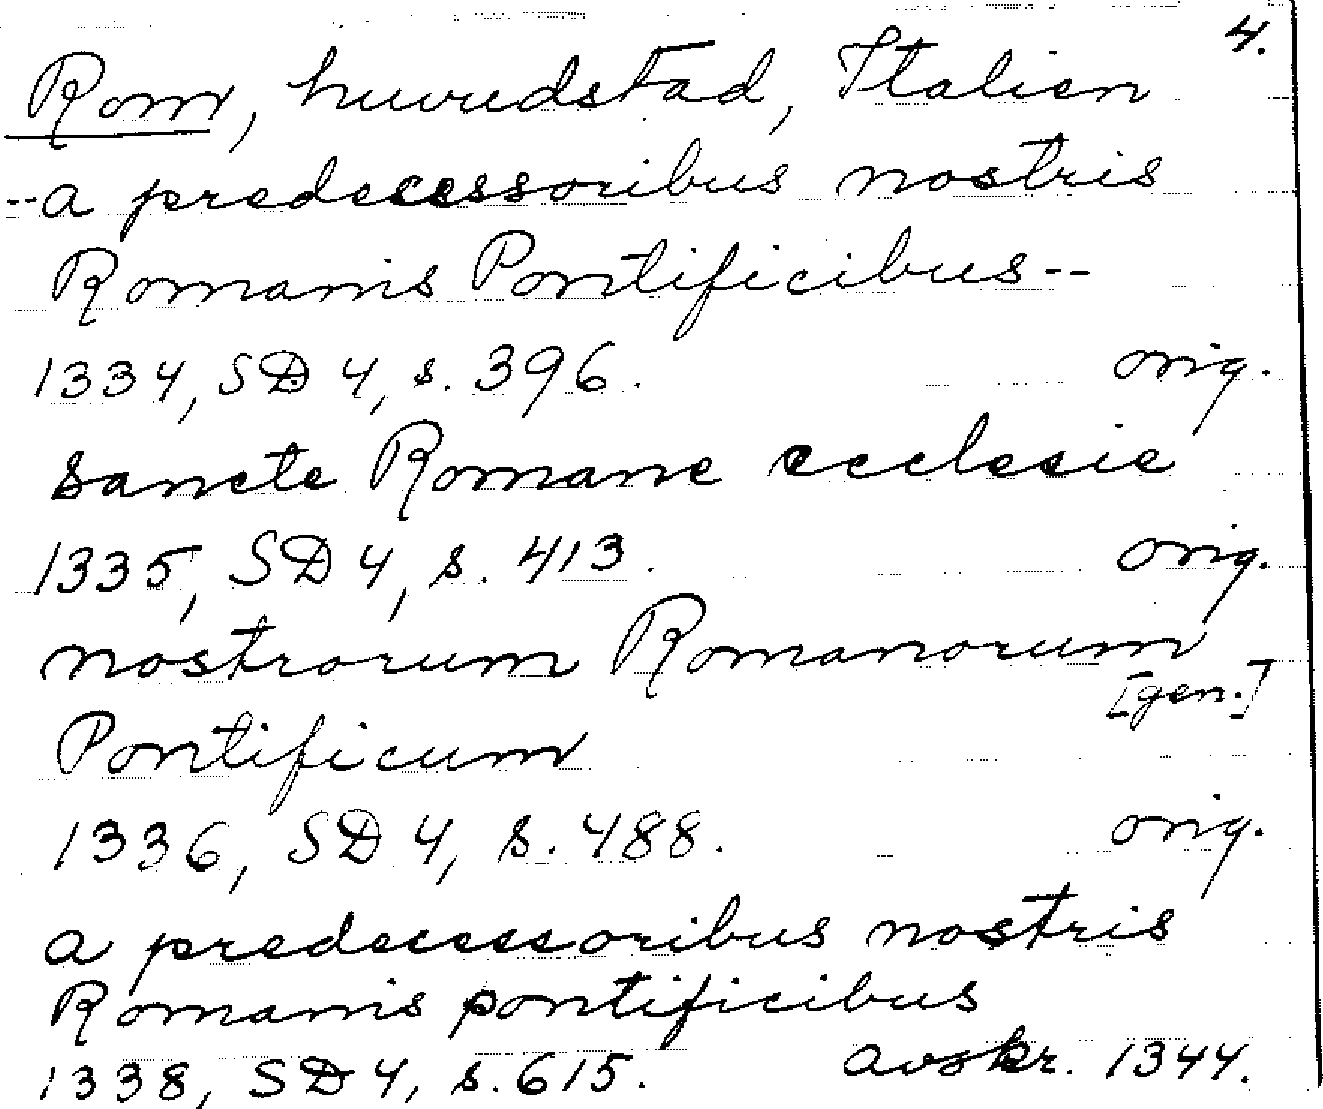 4.
Rom, huvudstad, Italien
--a predecessoribus nostris
Romanis Pontificibus--
1334, SD 4, s. 396. orig.
sancte Romane ecclesie
1335, SD 4, s. 413. orig.
nostrorum Romanorum
[gen.]
Pontificum
1336, SD 4, s. 488. orig.
a predecessoribus nostris
Romanis pontificibus
1338, SD 4, s. 615. avskr. 1344.